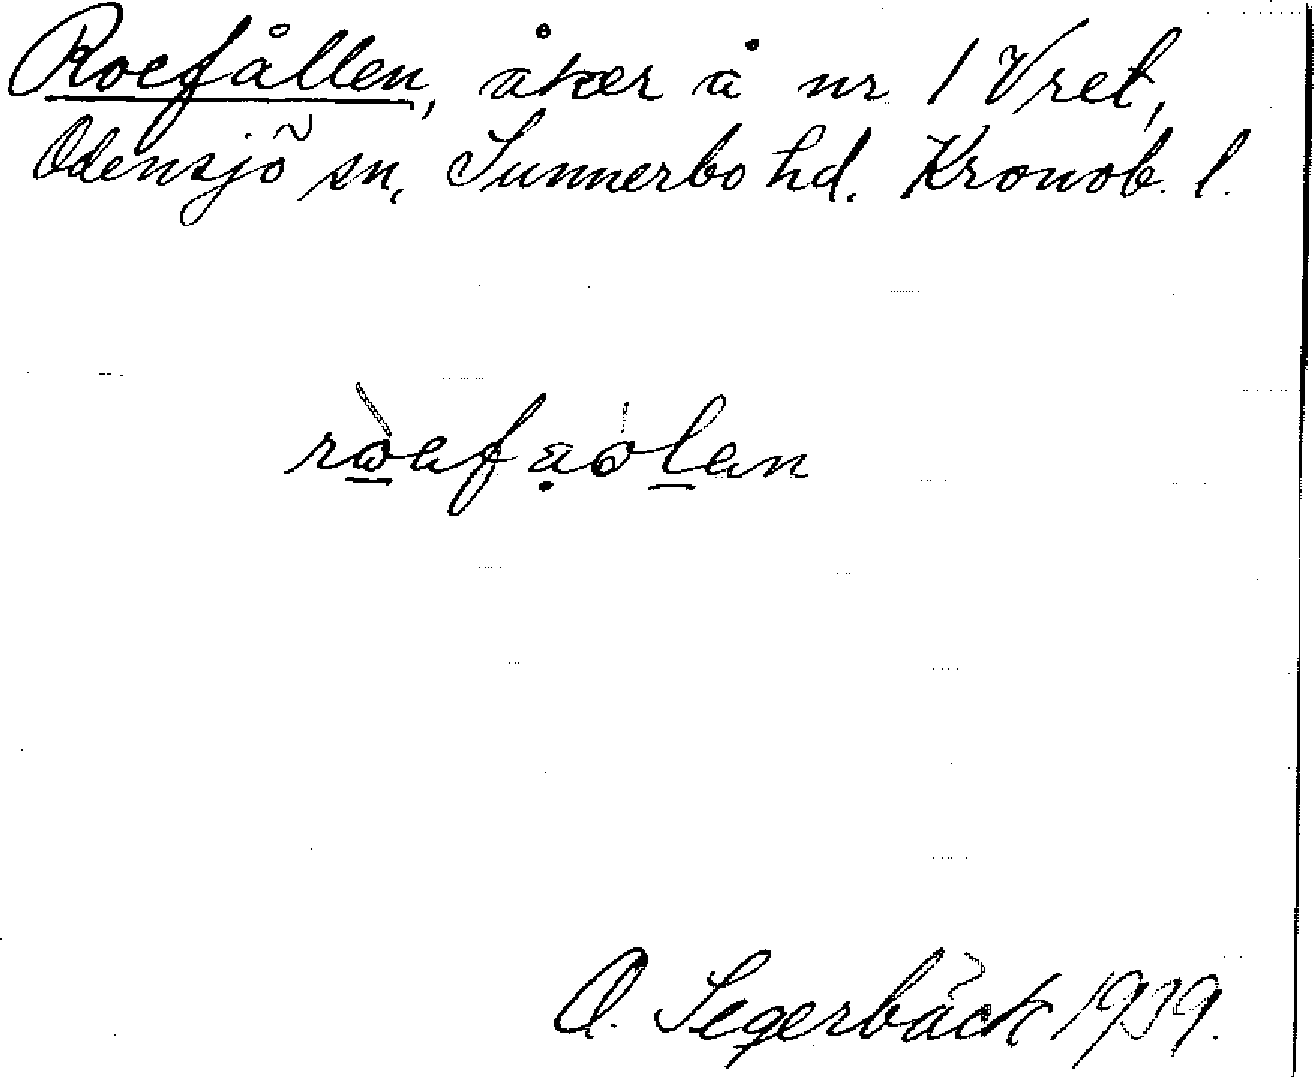 Roefållen, åker å nr 1 Vret,
Odensjö sn, Sunnerbo hd. Kronob. l.
O. Segerbäck 1939.